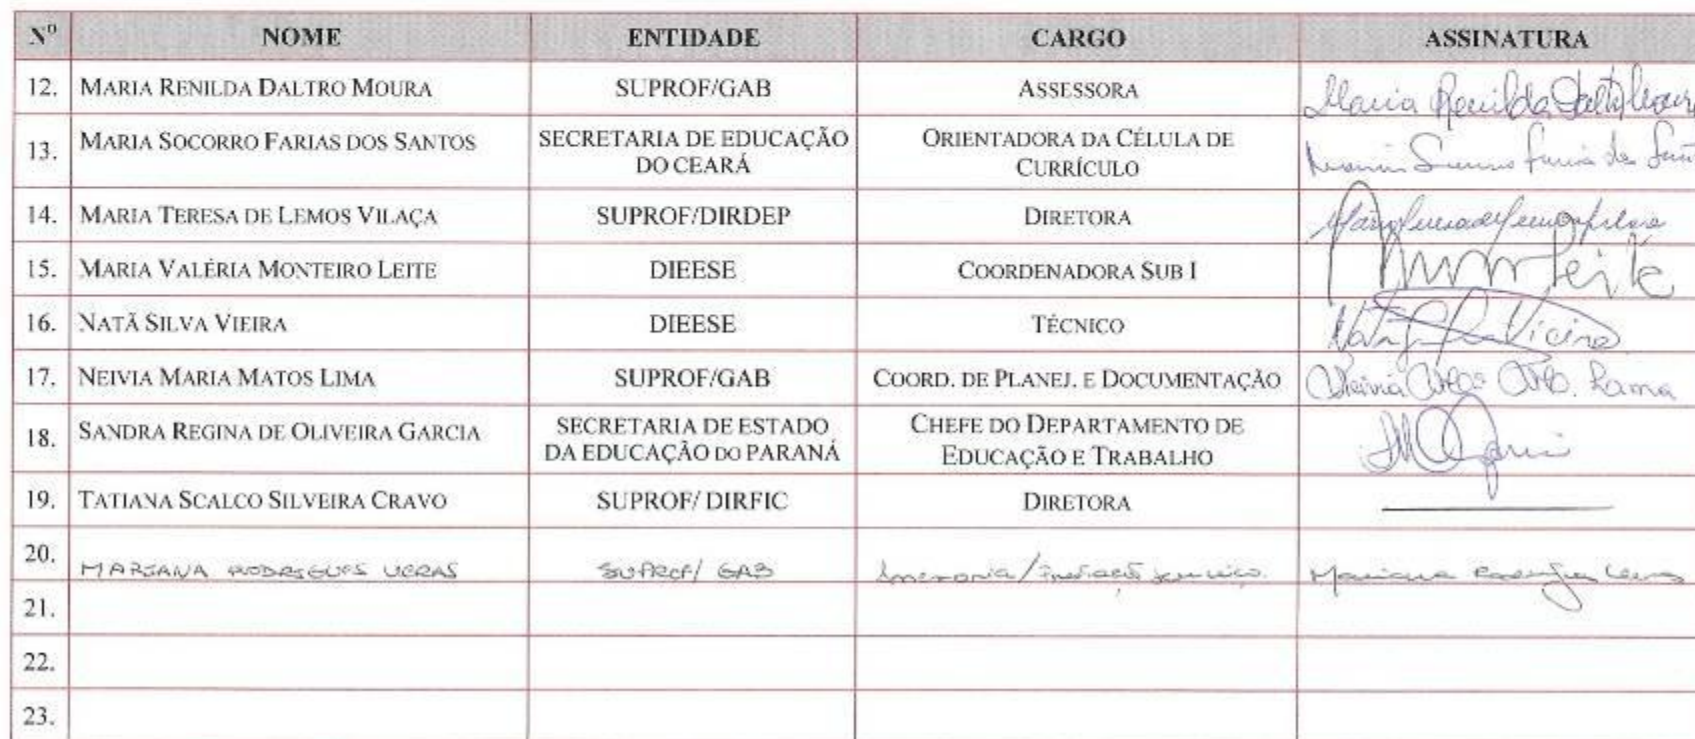 Nº NOME ENTIDADE CARGO ASSINATURA
12. MARIA RENILDA DALTRO MOURA SUPROF/GAB ASSESSORA Maria Renilda Daltro Moura
13. MARIA SOCORRO FARIAS DOS SANTOS SECRETARIA DE EDUCAÇÃO DO CEARÁ ORIENTADORA DA CÉLULA DE CURRÍCULO
14. MARIA TERESA DE LEMOS VILAÇA SUPROF/DIRDEP DIRETORA
15. MARIA VALÉRIA MONTEIRO LEITE DIEESE COORDENADORA SUB I Leite
16. NATÃ SILVA VIEIRA DIEESE TÉCNICO Vieira
17. NEIVIA MARIA MATOS LIMA SUPROF/GAB COORD. DE PLANEJ. E DOCUMENTAÇÃO
18. SANDRA REGINA DE OLIVEIRA GARCIA SECRETARIA DE ESTADO DA EDUCAÇÃO DO PARANÁ CHEFE DO DEPARTAMENTO DE EDUCAÇÃO E TRABALHO
19. TATIANA SCALCO SILVEIRA CRAVO SUPROF/ DIRFIC DIRETORA
20. MARIANA RODRIGUES VERAS SUPROF/ GAB Mariana Rodrigues Veras
21.
22.
23.